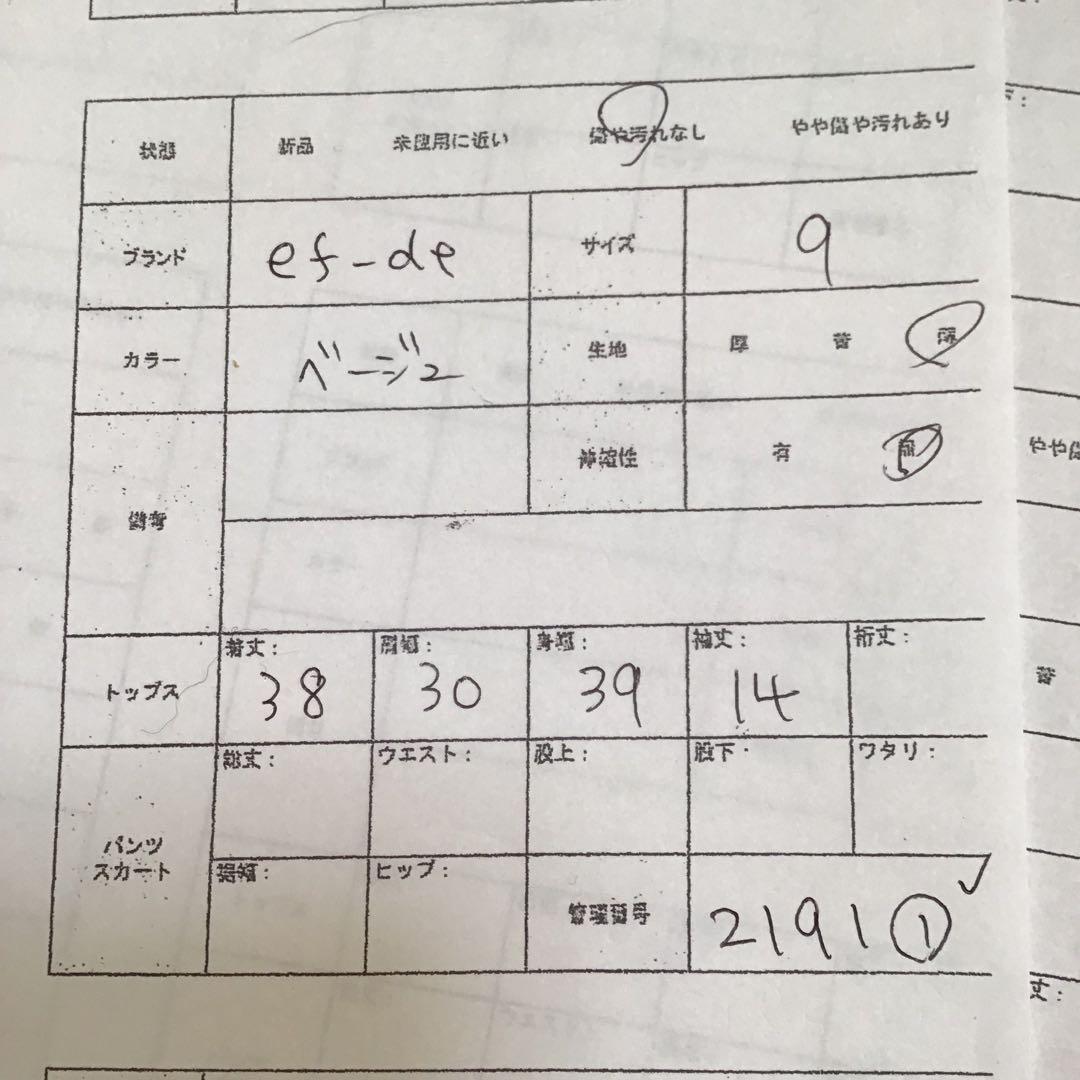 状態 新品 未使用に近い 傷や汚れなし やや傷や汚れあり
ブランド ef-de サイズ 9
カラー ベージュ 生地 厚 普 薄
備考 伸縮性 有 無
トップス 着丈: 38 肩幅: 30 身幅: 39 袖丈: 14 裄丈:
パンツ スカート 総丈: ウエスト: 股上: 股下: ワタリ:
裾幅: ヒップ: 管理番号 2191①
やや傷
普
丈: